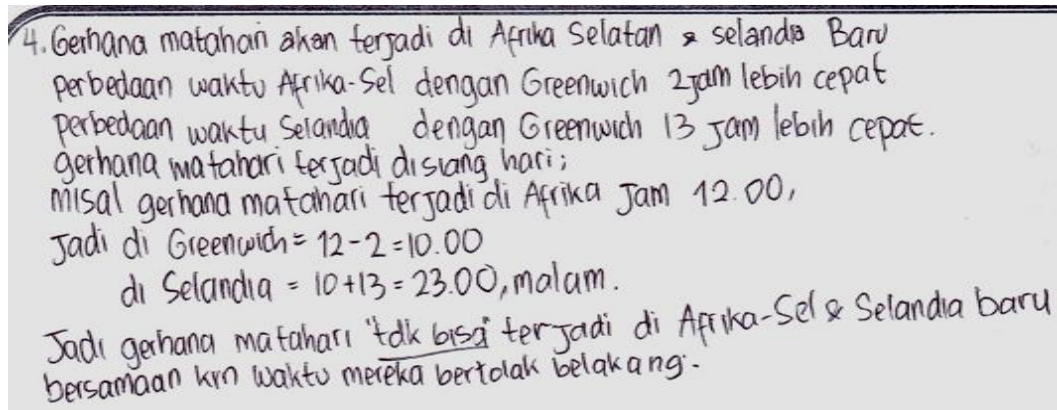 4. Gerhana matahari akan terjadi di Afrika Selatan & selandia Baru
perbedaan waktu Afrika-Sel dengan Greenwich 2 jam lebih cepat
perbedaan waktu Selandia dengan Greenwich 13 jam lebih cepat.
gerhana matahari terjadi disiang hari;
misal gerhana matahari terjadi di Afrika Jam 12.00,
Jadi di Greenwich = 12-2 = 10.00
di Selandia = 10+13 = 23.00, malam.
Jadi gerhana matahari "tdk bisa" terjadi di Afrika-Sel & Selandia baru
bersamaan krn waktu mereka bertolak belakang.